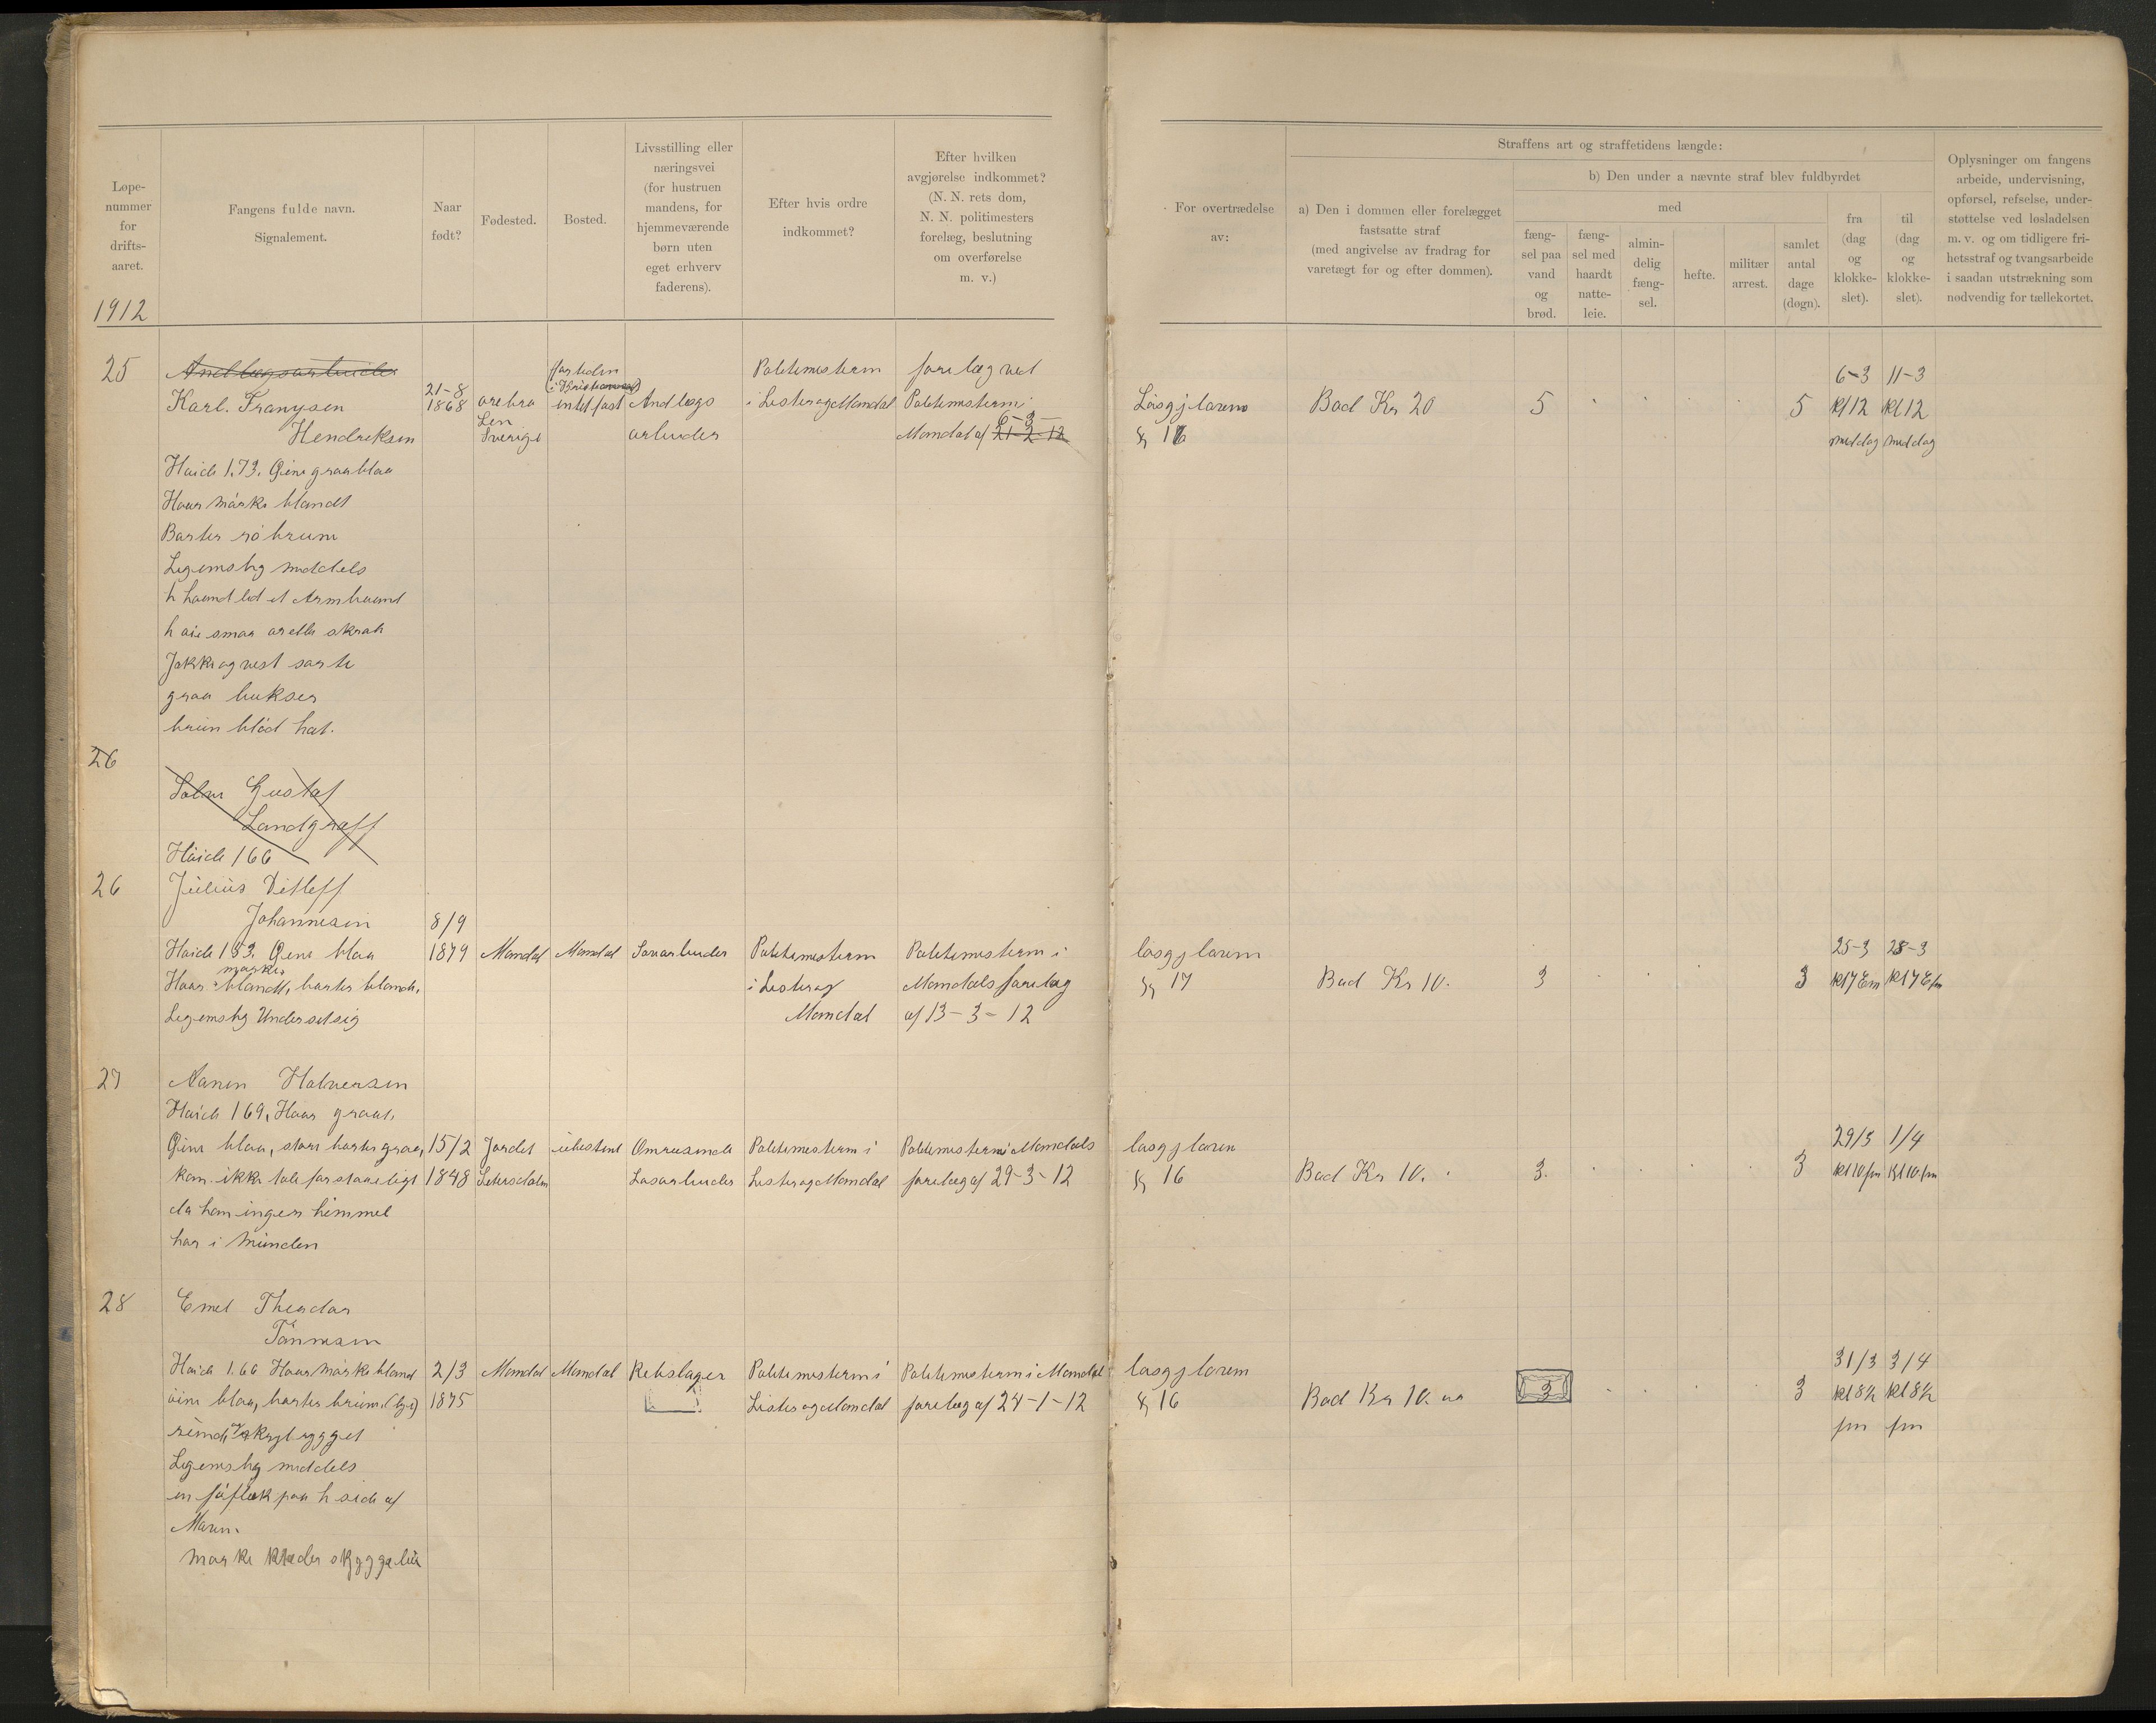 Løpe-
nummer
for
drifts-
aaret.
1912
Fangens fulde navn.
Signalement.
Naar
født?
Fødested.
Bosted.
Livsstilling eller
næringsvei
(for hustruen
mandens, for
hjemmeværende
børn uten
eget erhverv
faderens).
Efter hvis ordre
indkommet?
Efter hvilken
avgjørelse indkommet?
(N. N. rets dom,
N. N. politimesters
forelæg, beslutning
om overførelse
m. v.)
For overtrædelse
av:
Straffens art og straffetidens længde:
a) Den i dommen eller forelægget
fastsatte straf
(med angivelse av fradrag for
varetægt før og efter dommen).
b) Den under a nævnte straf blev fuldbyrdet
med
fæng-
sel paa
vand
og
brød.
fæng-
sel med
haardt
natte-
leie.
almin-
delig
fæng-
sel.
hefte.
militær
arrest.
samlet
antal
dage
(døgn).
fra
(dag
og
klokke-
slet).
til
(dag
og
klokke-
slet).
Oplysninger om fangens
arbeide, undervisning,
opførsel, refselse, under-
støttelse ved løsladelsen
m. v. og om tidligere fri-
hetsstraf og tvangsarbeide
i saadan utstrækning som
nødvendig for tællekortet.
25
Andlægsarbeider
Karl. Franysen
Hendreksen
Haide 1.73. Øine graablaa
Haar mørke blandt
Barter rø brune
Legemsbyg middels
h haand led et Armbaand
h øie smaa skrah
Jakke og vest sorte
graa bukser
brun blød hat.
21-8
1868
orebro
Len
Sverige
for tiden
intet fast
Andlægs
arbeider
Politimesteren
i Lister og Mandal
forelæg ved
Politimesteren i
6-3-
Mandal af 21-2-12
Løsgjloren
§ 16
Bod Kr 20
5
5
6-3 11-3
kl 12 kl 12
middag middag
26
Gustaf
Landgraff
Høide 166
26
Julius Ditleff
Johannesen
Høide 183. Øine blaa
mørke
Haar blandt, barter blande,
Legemsbyg Undersetsig
8/9
1879
Mandal
Mandal
Søarbeider
Politimesteren
i Lister og
Mandal
Politimesteren i
Mandals forelæg
af 13-3-12
løsgjloren
§ 17
Bod Kr 10.
3
3
25-3 28-3
kl 7 Em kl 7 Efm
27
Aanen Halversen
Høide 169, Haar graat,
Øine blaa, store barter graa,
kan ikke tale forstaaeligt
da han ingen himmel
har i Munden
15/2
1848
Jordet
Setersdalen
ubestemt
Omreisende
Løsarbeider
Politimesteren i
Lister og Mandal
Politimesteren i Mandals
forelæg af 29-3-12
løsgjloren
§ 16
Bod Kr 10.
3.
3
29/3 1/4
kl 10 fm kl 10 fm
28
Emel Theodor
Tønnesen
Høide 1.66 Haar mørke bland
øine blaa, barter brune (lys)
Legemsbyg middels
en føflæk paa h side af
Maven.
mørke klæder skyggelue
2/3
1875
Mandal
Mandal
Rebslager
Politimesteren i
Lister og Mandal
Politimesteren i Mandal
forelæg af 24-1-12
løsgjloren
§ 16
Bod Kr 10. oo
3
3
31/3 3/4
kl 8½ kl 8½
fm fm